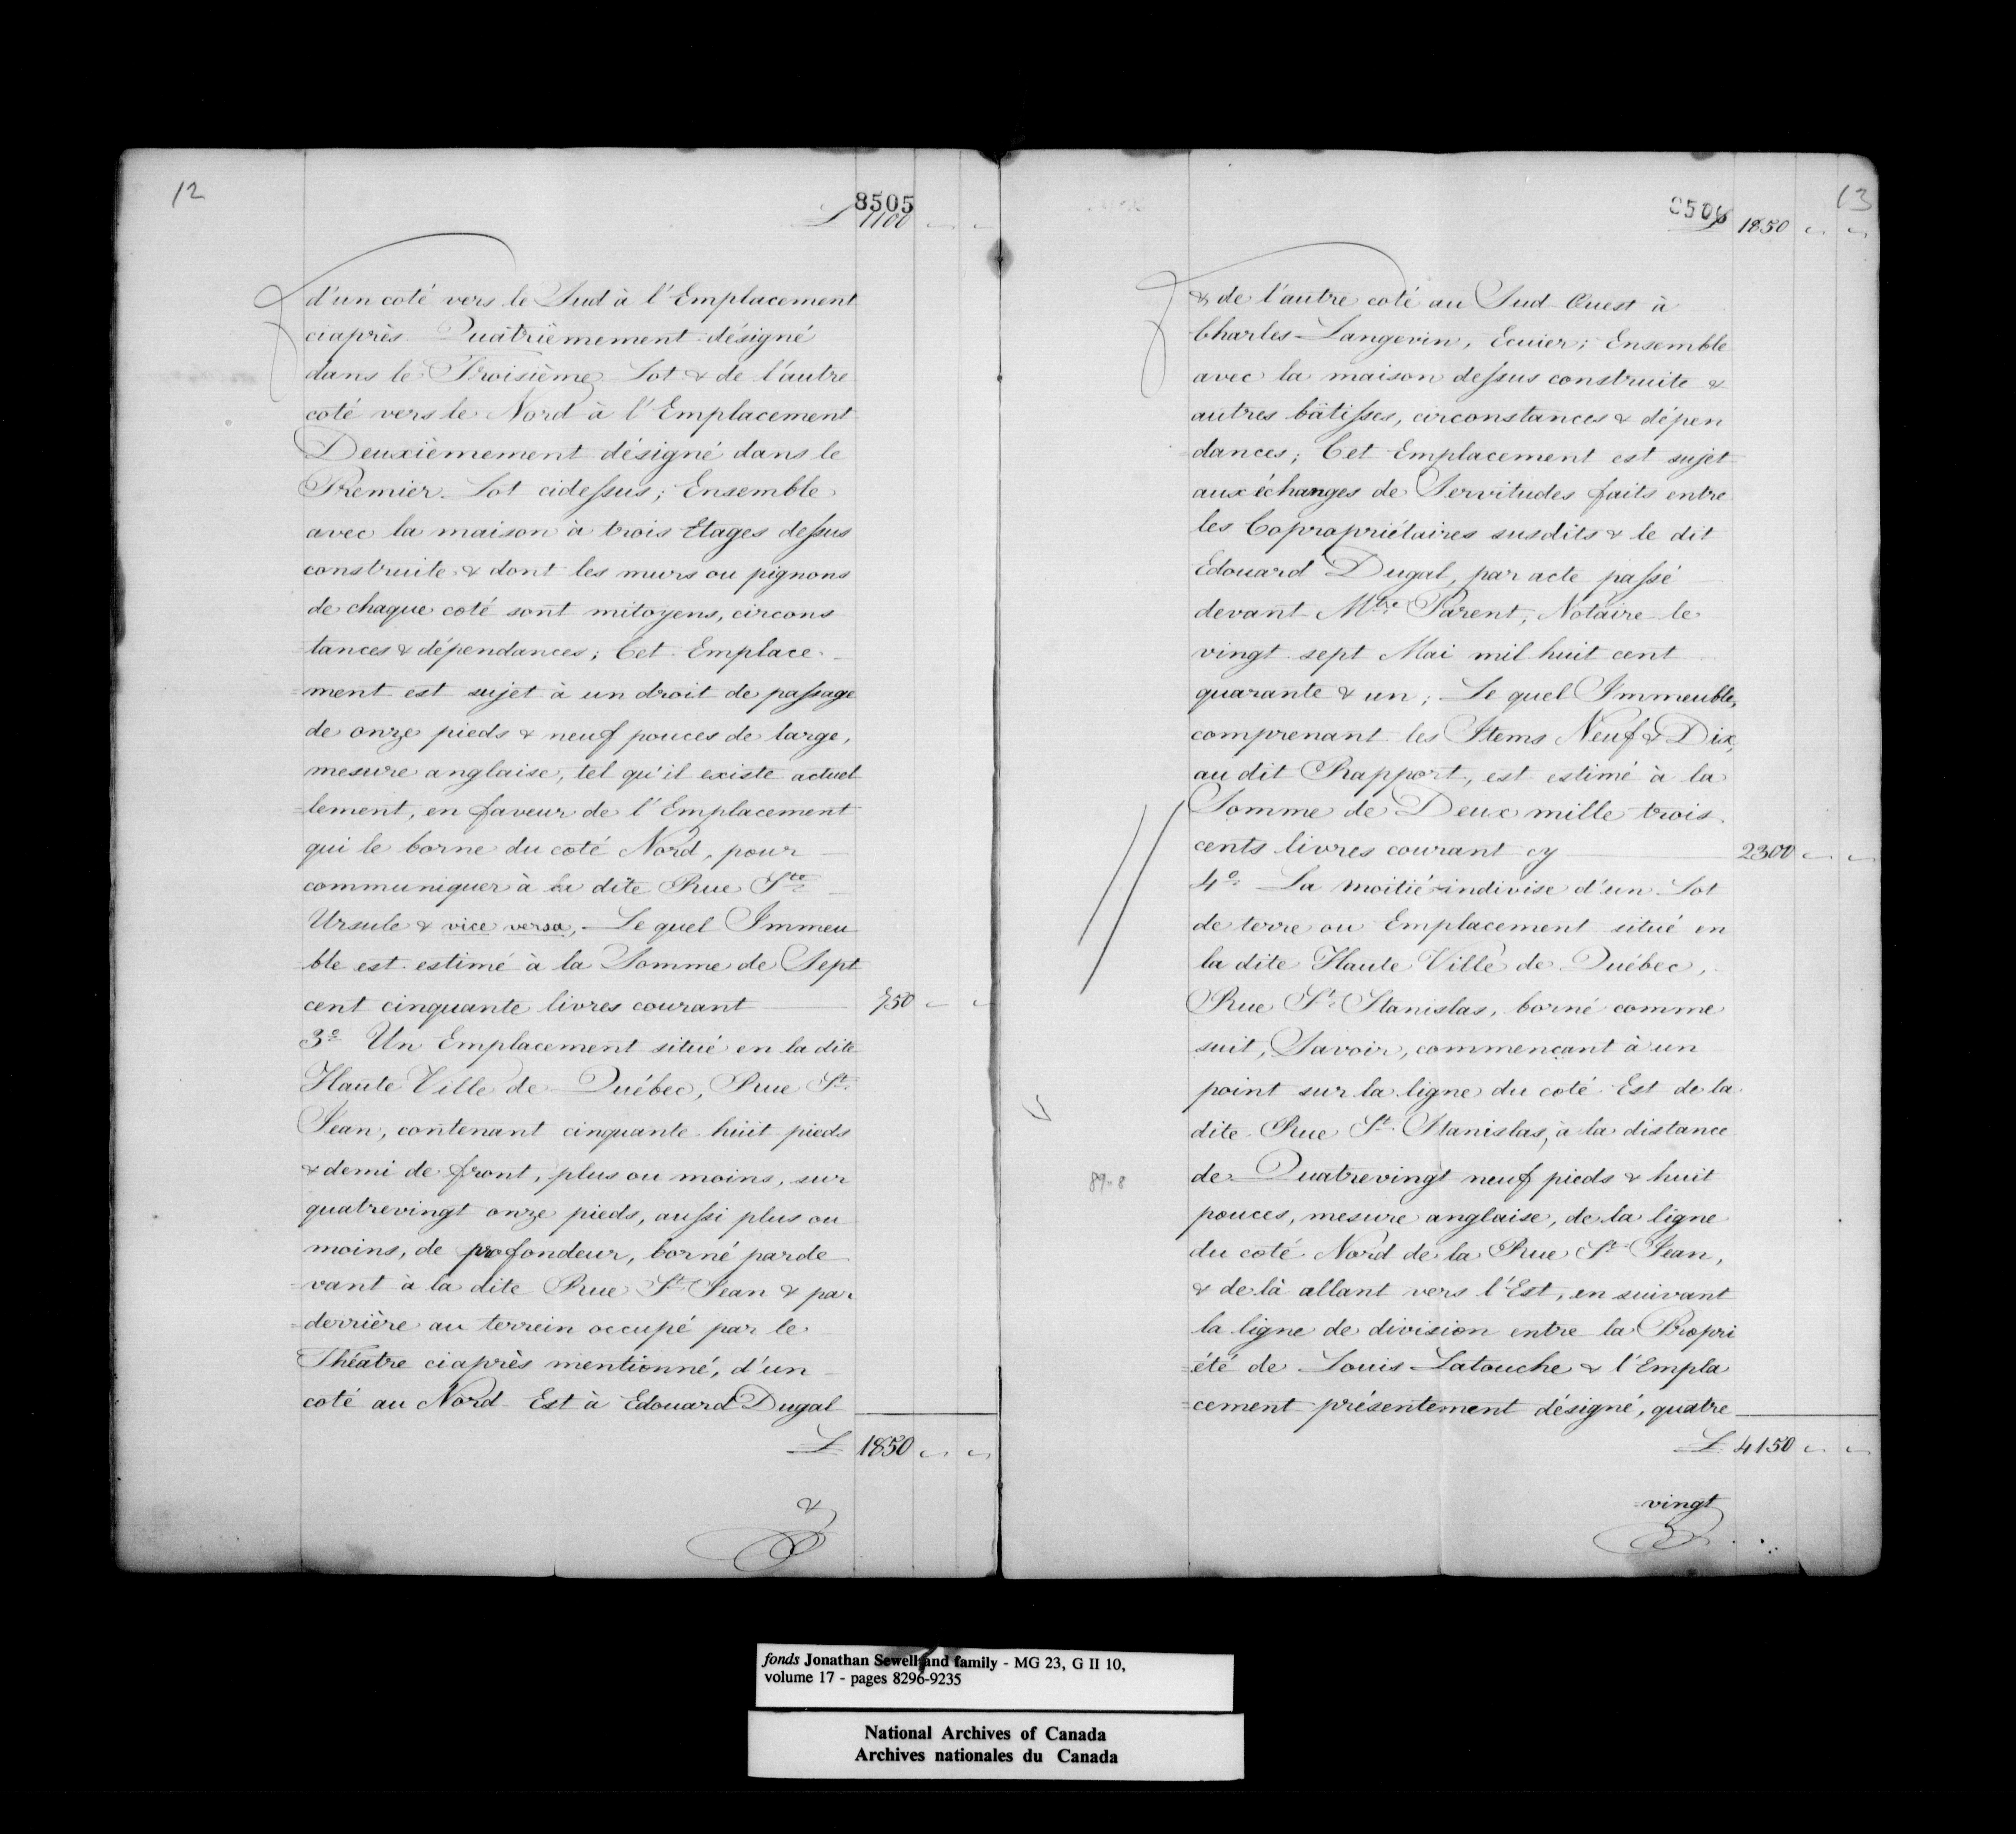 12
8505
£ 1100 " "
d'un coté vers le Sud à l'Emplacement
ciaprès Quatrièmement désigné
dans le Troisième Lot & de l'autre
coté vers le Nord à l'Emplacement
Deuxièmement désigné dans le
Premier Lot cidessus; Ensemble
avec la maison à trois Etages dessus
construite & dont les murs ou pignons
de chaque coté sont mitoyens, circons
=tances & dépendances; Cet Emplace-
=ment est sujet à un droit de passage
de onze pieds & neuf pouces de large,
mesure anglaise, tel qu'il existe actuel
=lement, en faveur de l'Emplacement
qui le borne du coté Nord, pour
communiquer à la dite Rue Ste
Ursule & vice versa, Le quel Immeu
=ble est estimé à la Somme de Sept
cent cinquante livres courant 750 " "
3o Un Emplacement situé en la dite
Haute Ville de Québec, Rue St
Jean, contenant cinquante huit pieds
& demi de front, plus ou moins, sur
quatrevingt onze pieds, aussi plus ou
moins, de profondeur, borné parde
=vant à la dite Rue St Jean & par
=derrière au terrein occupé par le
Théatre ciaprès mentionné, d'un
coté au Nord-Est à Edouard Dugal
£ 1850 " "
&
13
8506
£ 1850 " "
& de l'autre coté au Sud-Ouest à
Charles Langevin, Ecuier; Ensemble
avec la maison dessus construite &
autres bâtisses, circonstances & dépen
=dances; Cet Emplacement est sujet
aux échanges de Servitudes faits entre
les Copropriétaires susdits & le dit
Edouard Dugal, par acte passé
devant Mtre Parent, Notaire le
vingt sept Mai mil huit cent
quarante & un; Le quel Immeuble,
comprenant les Items Neuf & Dix,
au dit Rapport, est estimé à la
Somme de Deux mille trois
cents livres courant cy 2300 " "
4o La moitié indivise d'un Lot
de terre ou Emplacement situé en
la dite Haute Ville de Québec,
Rue St Stanislas, borné comme
suit, Savoir, commençant à un
point sur la ligne du coté Est de la
dite Rue St Stanislas, à la distance
89-8
de Quatrevingt neuf pieds & huit
pouces, mesure anglaise, de la ligne
du coté Nord de la Rue St Jean,
& de là allant vers l'Est, en suivant
la ligne de division entre la Propri
=été de Louis Latouche & l'Empla
=cement présentement désigné, quatre
£ 4150 " "
=vingt
fonds Jonathan Sewell and family - MG 23, G II 10,
volume 17 - pages 8296-9235
National Archives of Canada
Archives nationales du Canada